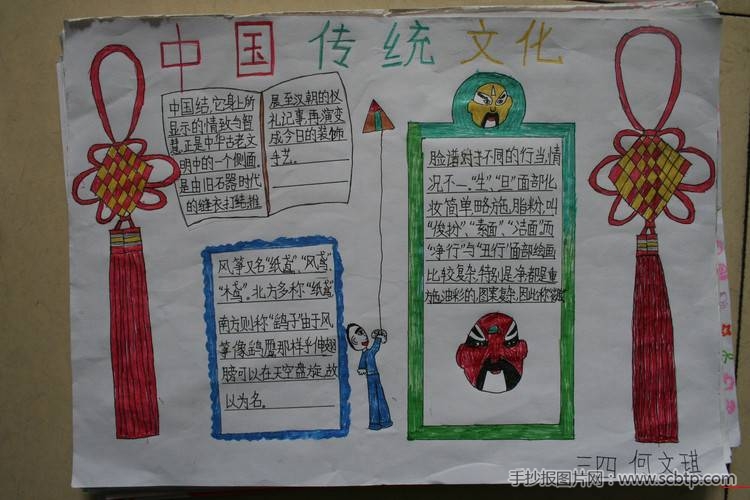 中国传统文化
中国结,它身上所
显示的情致与智
慧正是中华古老文
明中的一个侧面。
是由旧石器时代
的缝衣打结,推
展至汉朝的仪
礼记事,再演变
成今日的装饰
手艺。
风筝又名“纸鸢”、“风鸢”、
“木鸢”。北方多称“纸鸢”
南方则称“鹞子”由于风
筝像鹞鹰那样平伸翅
膀可以在天空盘旋,故
以为名。
脸谱对于不同的行当,情
况不一。“生”、“旦”面部化
妆简单,略施脂粉,叫
“俊扮”、“素面”、“洁面”。而
“净行”与“丑行”面部绘画
比较复杂,特别是净都是重
施油彩的,图案复杂,因此称
三四 何文琪
手抄报图片网:www.scbtp.com